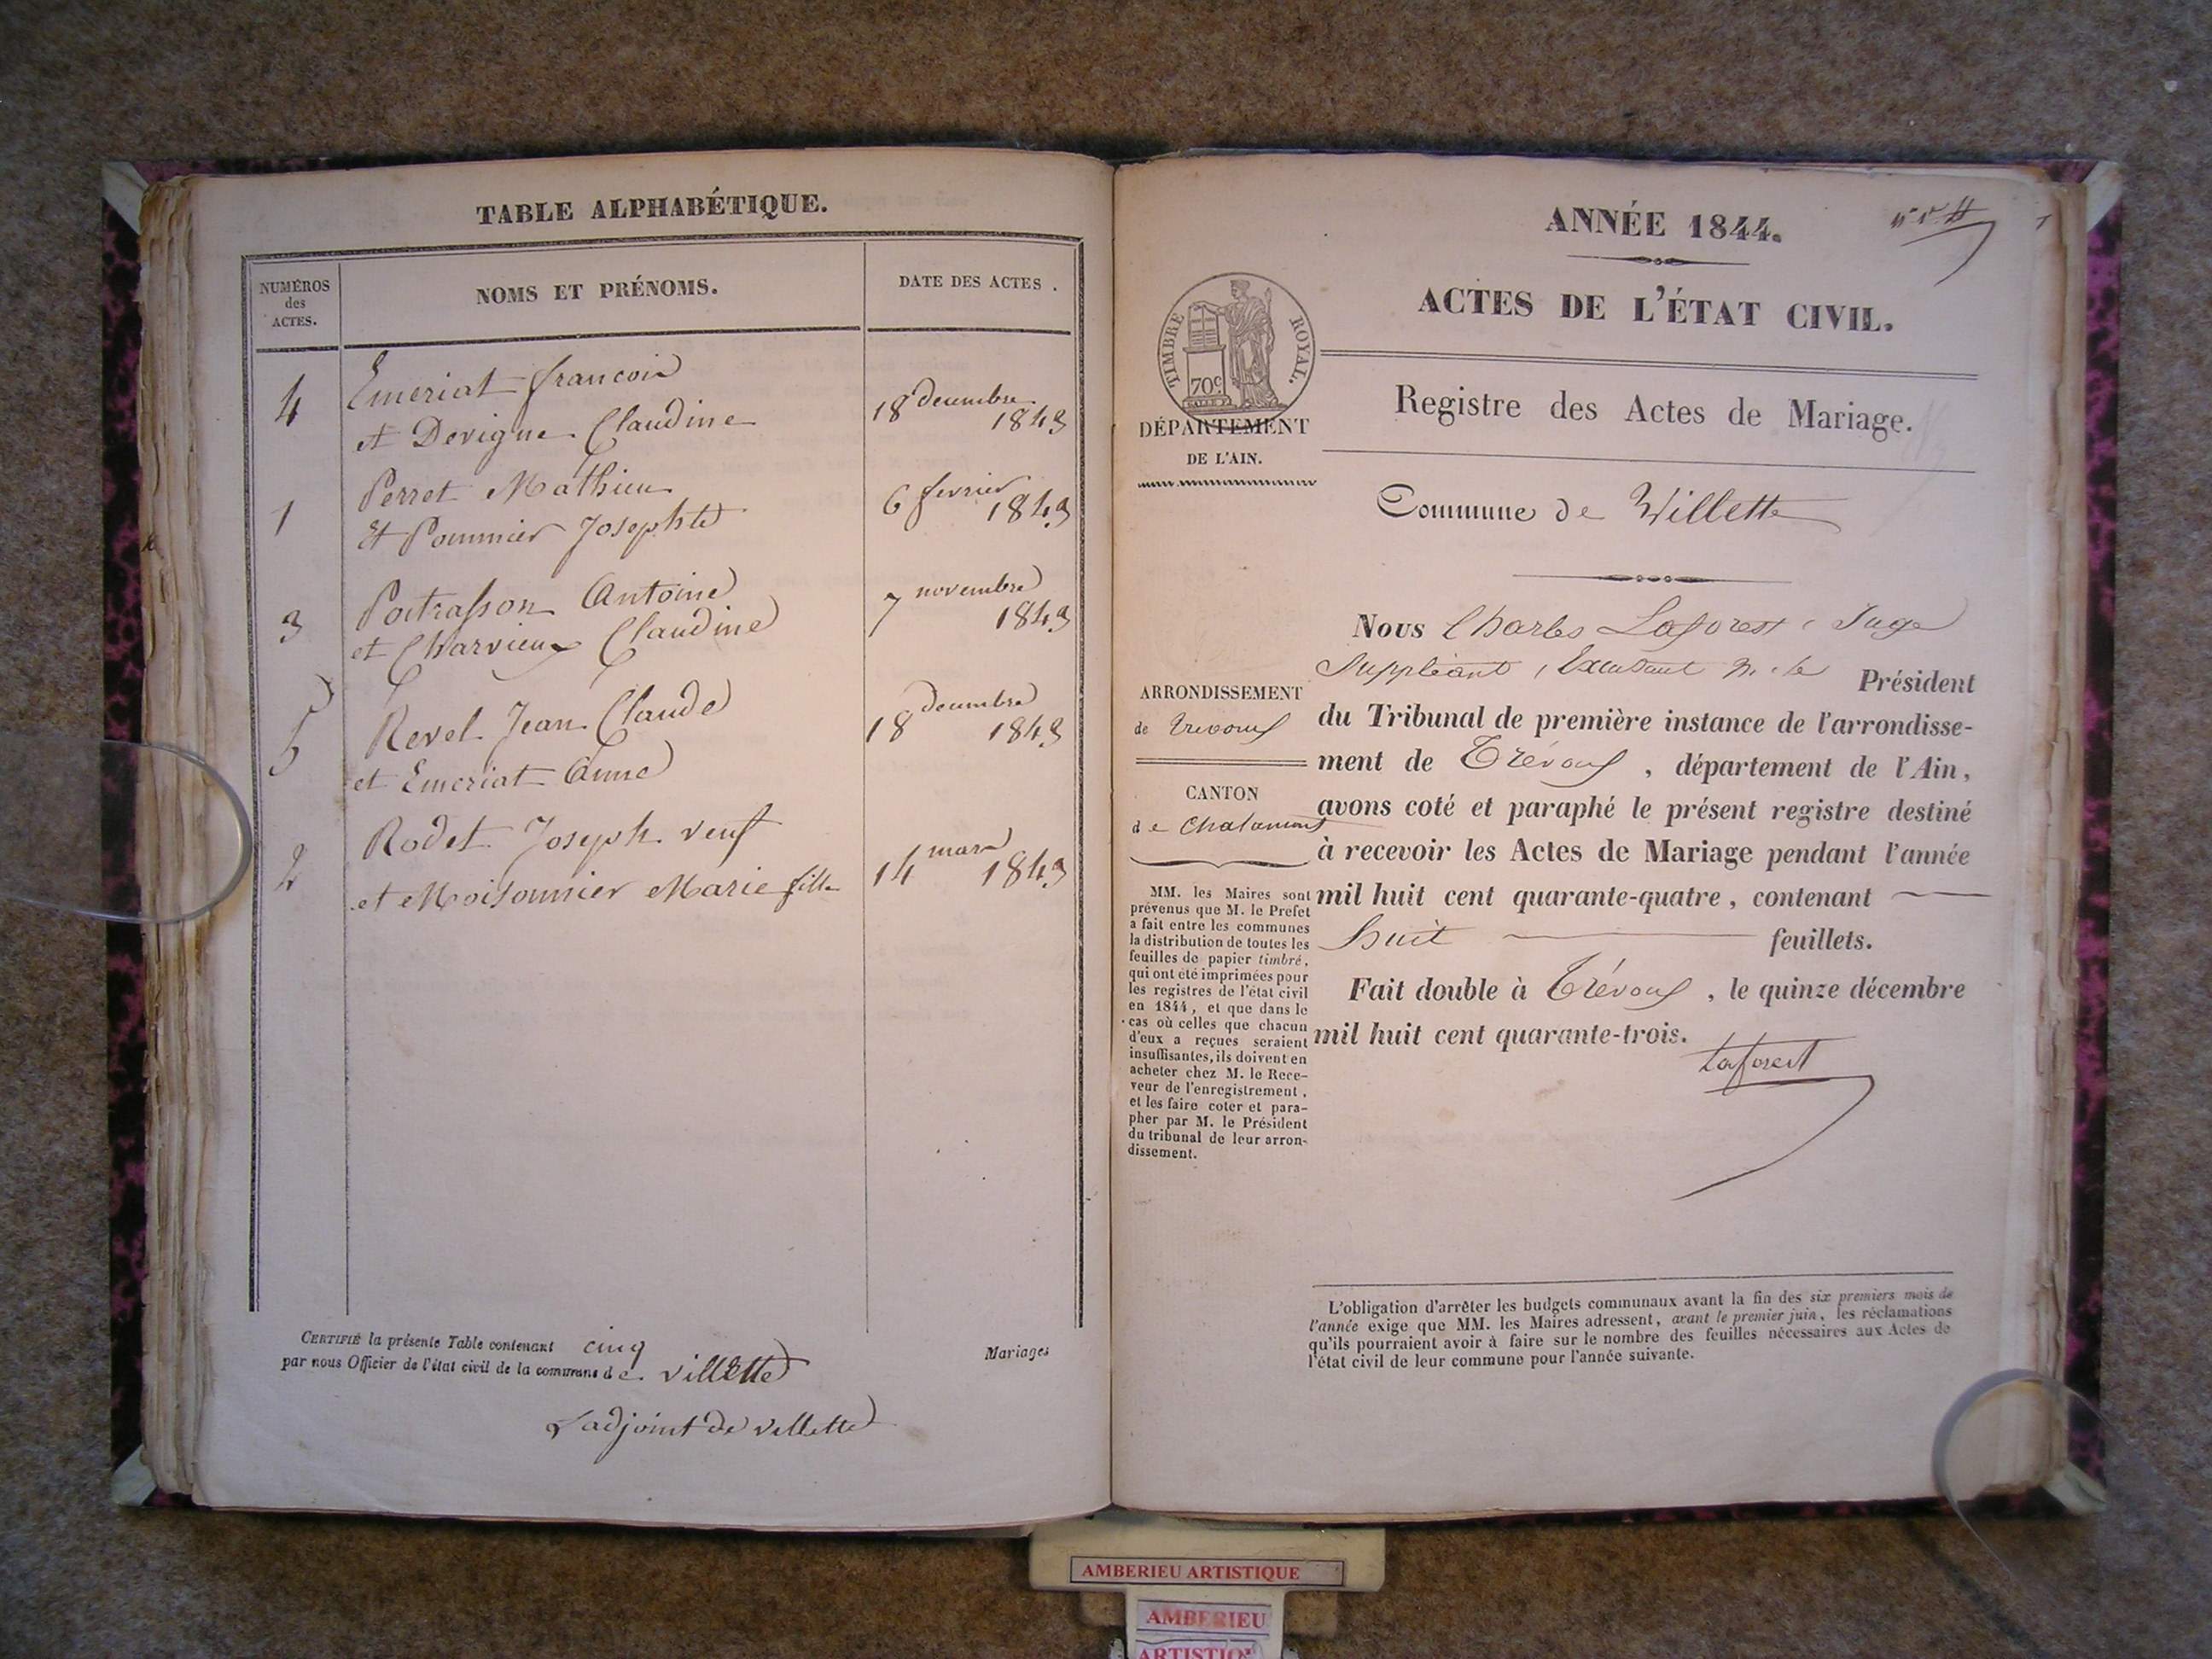 TABLE ALPHABÉTIQUE.
NUMÉROS
des
ACTES.
NOMS ET PRÉNOMS.
DATE DES ACTES.
4 Emeriat francois
et Devigne Claudine
18 decembre
1843
1 Perret Mathieu
et Pommier Josephte
6 fevrier
1843
3 Poitrasson Antoine
et Charvieux Claudine
7 novembre
1843
5 Revel Jean Claude
et Emeriat Anne
18 decembre
1843
2 Rodet Joseph veuf
et Moisonnier Marie fille
14 mars
1843
CERTIFIÉ la présente Table contenant cinq Mariages
par nous Officier de l'état civil de la commune de villette
L'adjoint de villette
ANNÉE 1844.
1
ACTES DE L'ÉTAT CIVIL.
TIMBRE ROYAL.
70c
DÉPARTEMENT
DE L'AIN.
Registre des Actes de Mariage.
Commune de Villette
ARRONDISSEMENT
de Trevoux
CANTON
de Chalamont
MM. les Maires sont
prévenus que M. le Prefet
a fait entre les communes
la distribution de toutes les
feuilles de papier timbré,
qui ont été imprimées pour
les registres de l'état civil
en 1844, et que dans le
cas où celles que chacun
d'eux a reçues seraient
insuffisantes, ils doivent en
acheter chez M. le Rece-
veur de l'enregistrement,
et les faire coter et para-
pher par M. le Président
du tribunal de leur arron-
dissement.
Nous Charles Laforest, Juge
Suppléant, M. le Président
du Tribunal de première instance de l'arrondisse-
ment de Trévoux, département de l'Ain,
avons coté et paraphé le présent registre destiné
à recevoir les Actes de Mariage pendant l'année
mil huit cent quarante-quatre, contenant
huit feuillets.
Fait double à Trévoux, le quinze décembre
mil huit cent quarante-trois.
Laforest
L'obligation d'arrêter les budgets communaux avant la fin des six premiers mois de
l'année exige que MM. les Maires adressent, avant le premier juin, les réclamations
qu'ils pourraient avoir à faire sur le nombre des feuilles nécessaires aux Actes de
l'état civil de leur commune pour l'année suivante.
AMBERIEU ARTISTIQUE
AMBERIEU